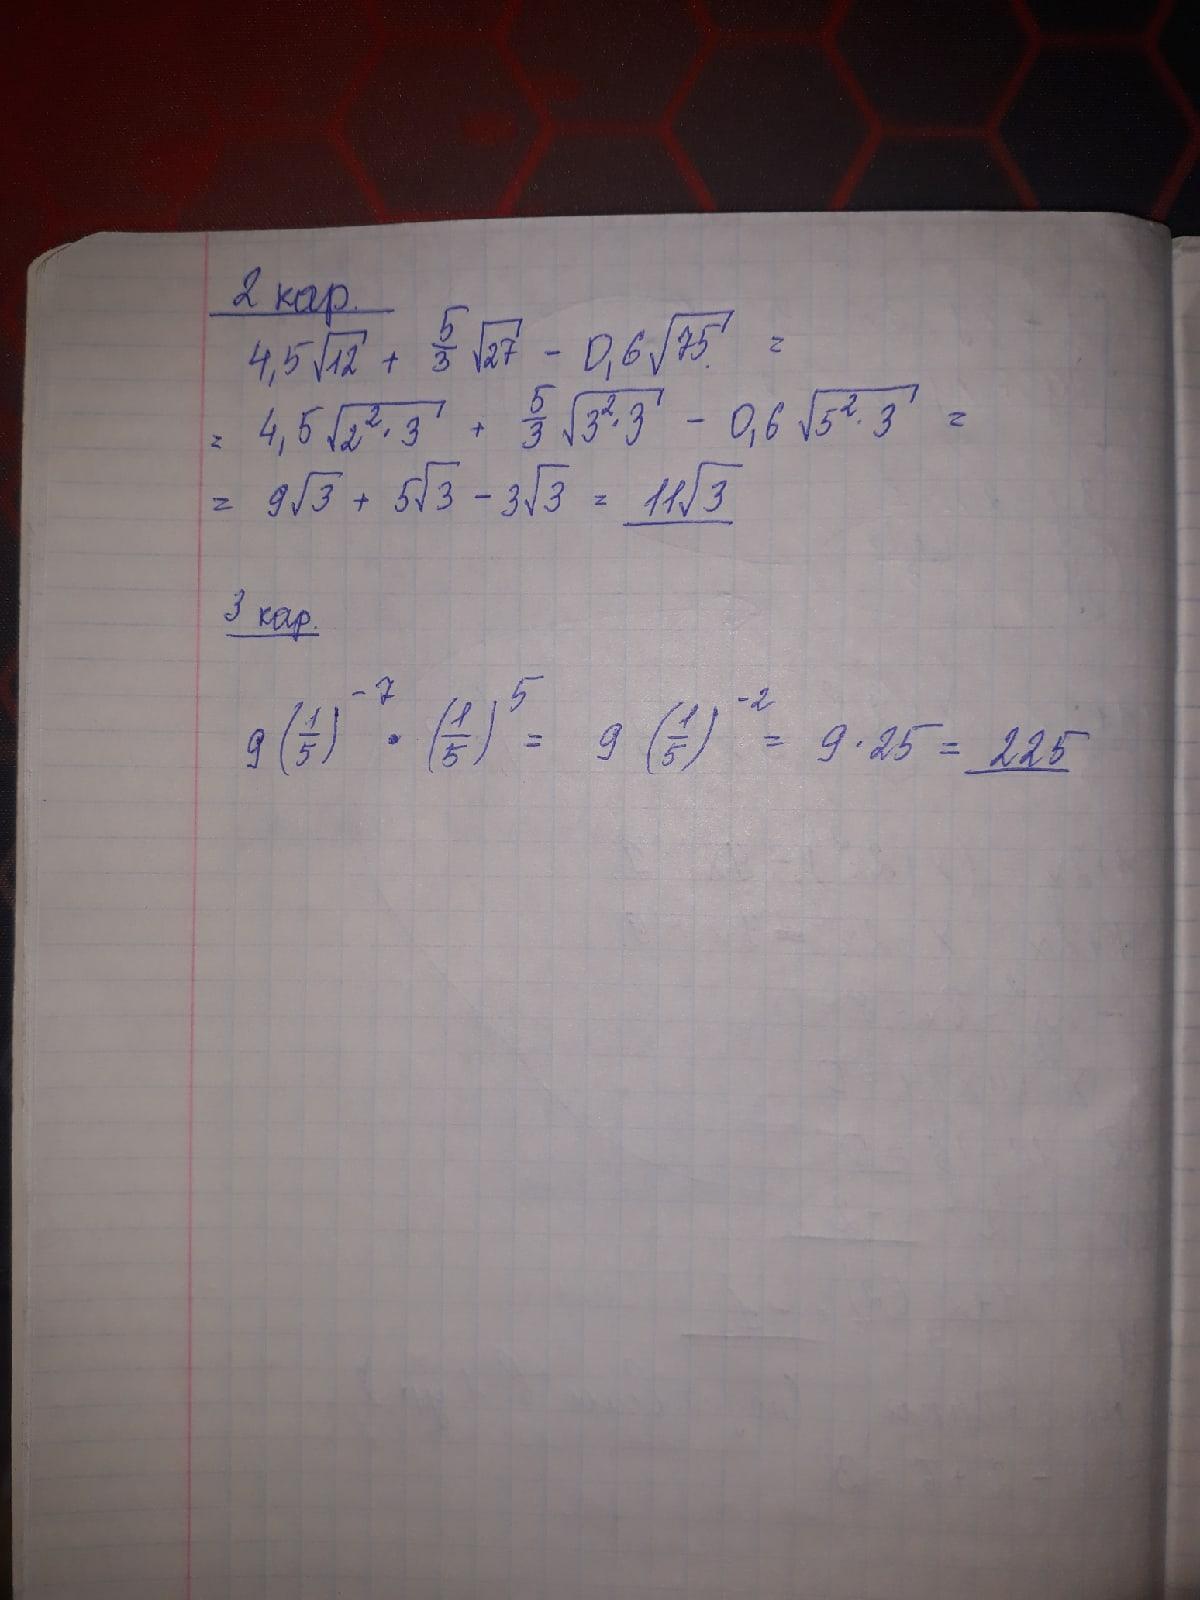 2 кар.
4,5√12 + 5/3 √27 - 0,6√75 =
= 4,5√2²·3 + 5/3 √3²·3 - 0,6√5²·3 =
= 9√3 + 5√3 - 3√3 = 11√3
3 кар.
9(1/5)⁻⁷ · (1/5)⁵ = 9(1/5)⁻² = 9·25 = 225